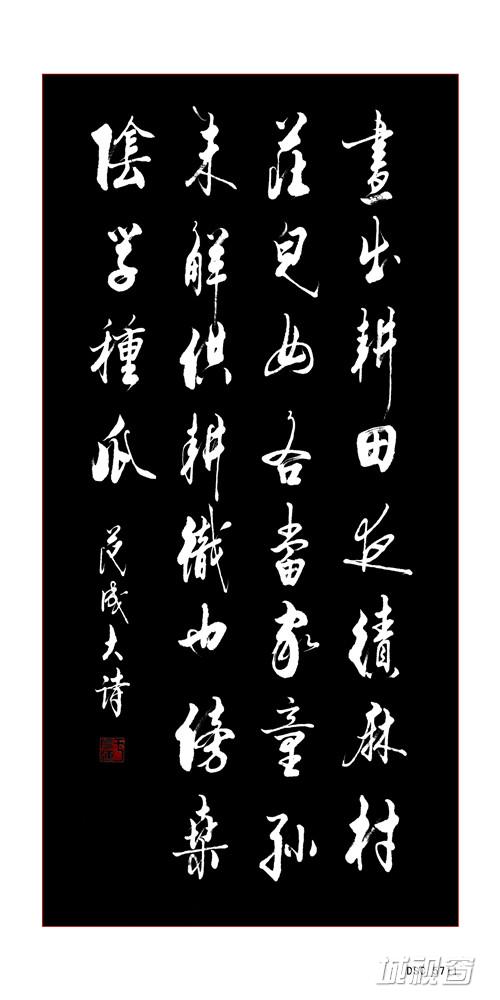 晝出耕田夜績麻村
莊兒女各當家童孫
未解供耕織也傍桑
陰學種瓜
范成大詩
城视窗